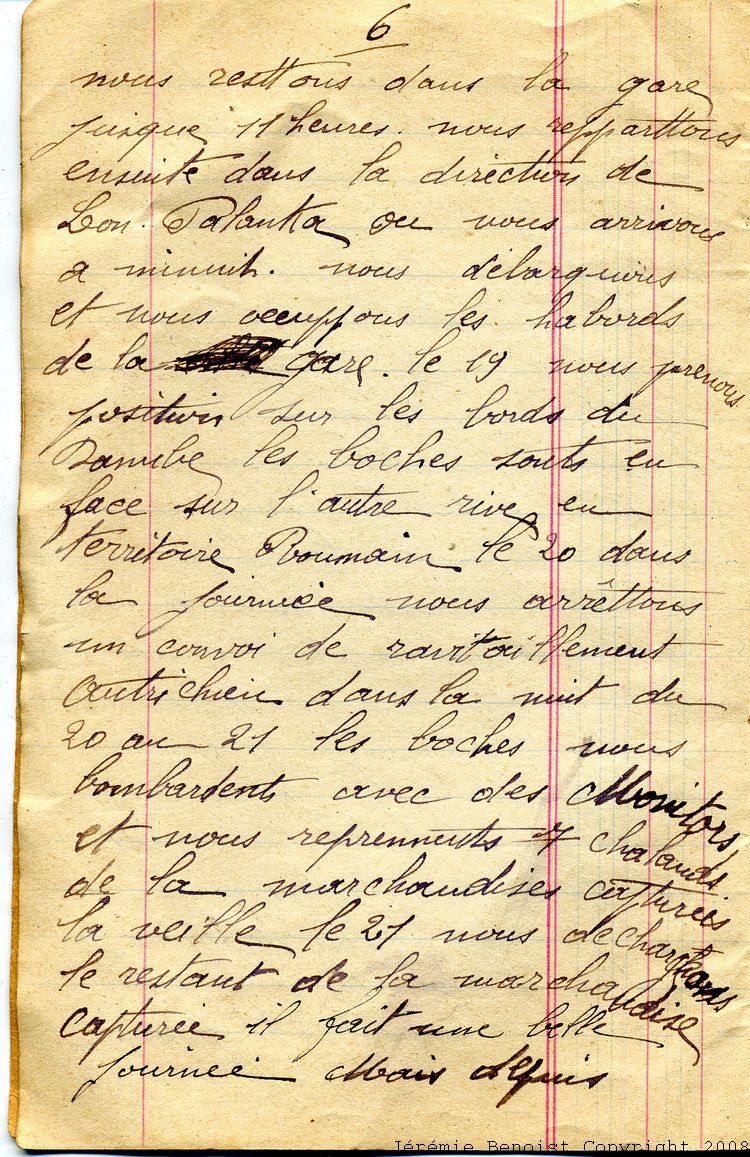 6
nous resttons dans la gare
jusque 11 heures. nous reppartons
ensuite dans la direction de
Lom. Palanka ou nous arrivons
a minuit. nous débarquons
et nous occuppons les habords
de la gare. le 19 nous prenons
position sur les bords du
Danube les boches sonts en
face sur l'autre rive en
territoire Roumain le 20 dans
la journée nous arrêttons
un convoi de ravitaillement
autrichien dans la nuit du
20 au 21 les boches nous
bombardents avec des Monitors
et nous reprennents 7 chalands
de la marchandises capturées
la veille le 21 nous dechargeons
le restant de la marchandise
capturée il fait une belle
journée Mais depuis
Jérémie Benoist Copyright 2008